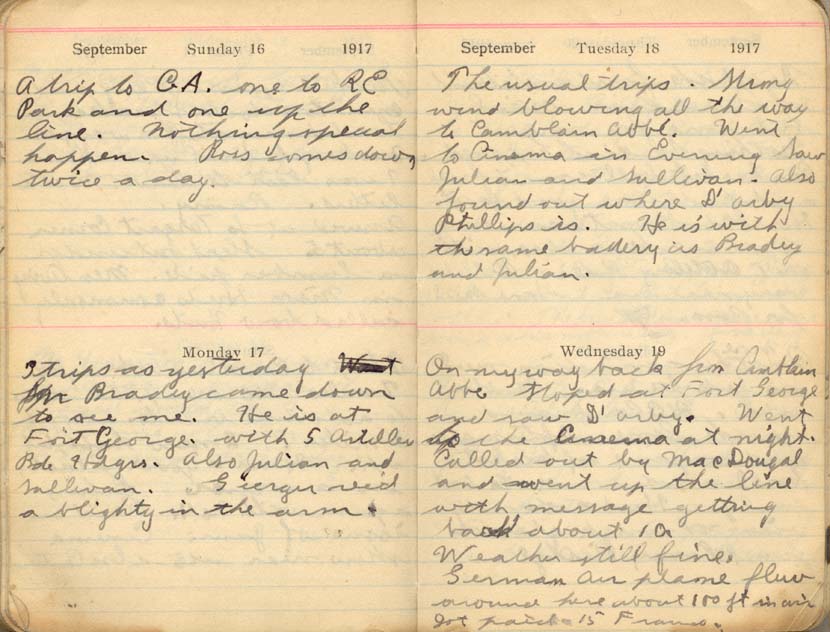 September Sunday 16 1917
A trip to CA. one to RE
Park and one up the
line. Nothing special
happen. Ross comes down
twice a day.
Monday 17
3 trips as yesterday Went
for Bradey came down
to see me. He is at
Fort George. with 5 Artillery
Bde Hdqrs. Also Julian and
Sullivan. rec'd
a blighty in the arm.
September Tuesday 18 1917
The usual trips. Strong
wind blowing all the way
to Camblain Abbe. Went
to Cinema in Evening Saw
Julian and Sullivan. Also
found out where D'arby
Phillips is. He is with
the same battery as Bradey
and Julian.
Wednesday 19
On my way back from Camblain
Abbe stoped at Fort George
and saw D'arby. Went
to the Cinema at night.
Called out by MacDougal
and went up the line
with message getting
back about 1a
Weather still fine.
German air plame fluw
around here about 100 ft in air
Got paid 15 Francs.